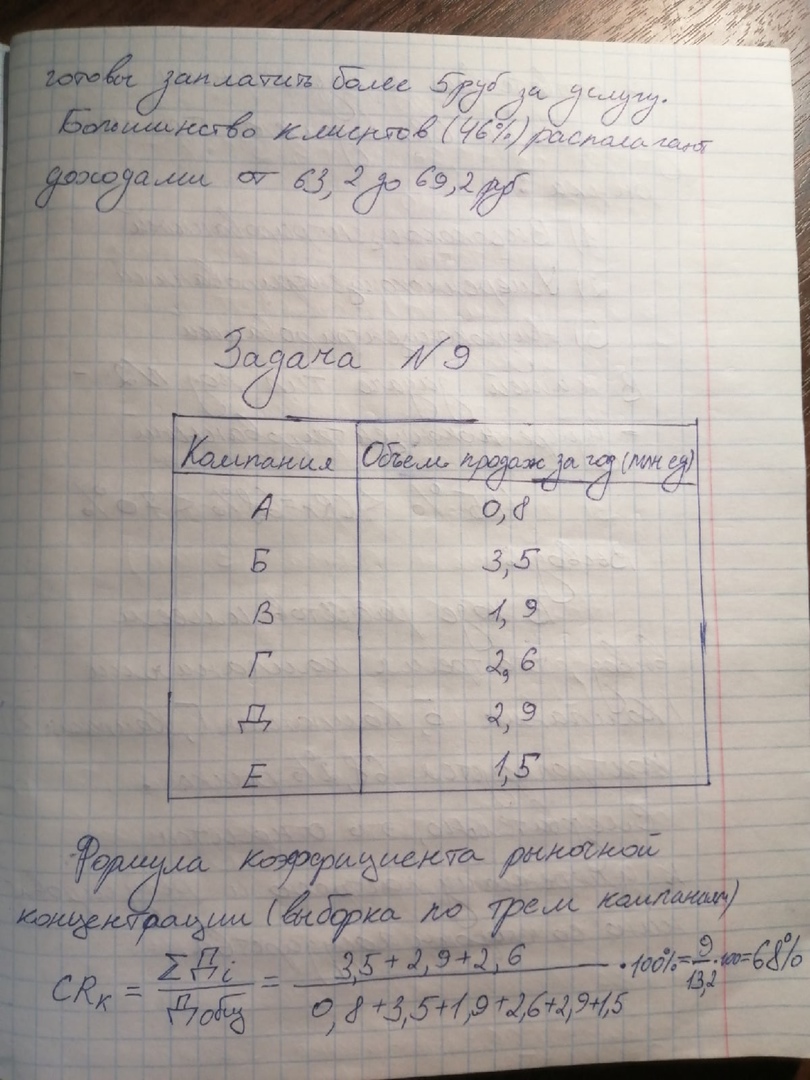 готовы заплатить более 5руб за услугу.
Большинство клиентов (46%) располагают
доходами от 63,2 до 69,2 руб
Задача N 9
Компания Объём продаж за год (млн ед)
А 0,8
Б 3,5
В 1,9
Г 2,6
Д 2,9
Е 1,5
Формула коэффициента рыночной
концентрации (выборка по трем компаниям)
CRк = ΣДi / Добщ = 3,5+2,9+2,6 / 0,8+3,5+1,9+2,6+2,9+1,5 · 100% = 9/13,2 · 100 = 68%